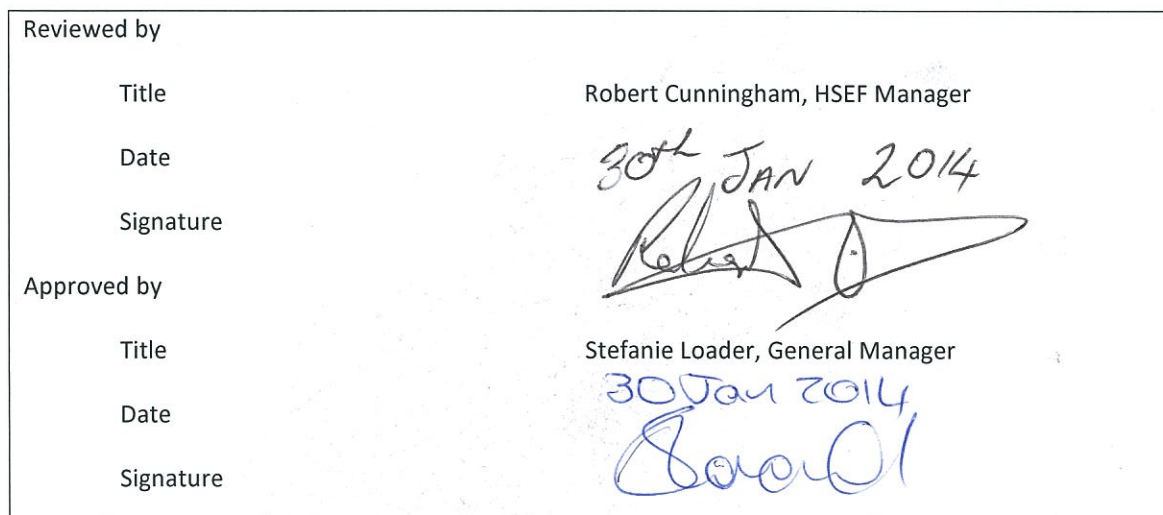 Reviewed by
Title Robert Cunningham, HSEF Manager
Date 30th JAN 2014
Signature
Approved by
Title Stefanie Loader, General Manager
Date 30 Jan 2014
Signature